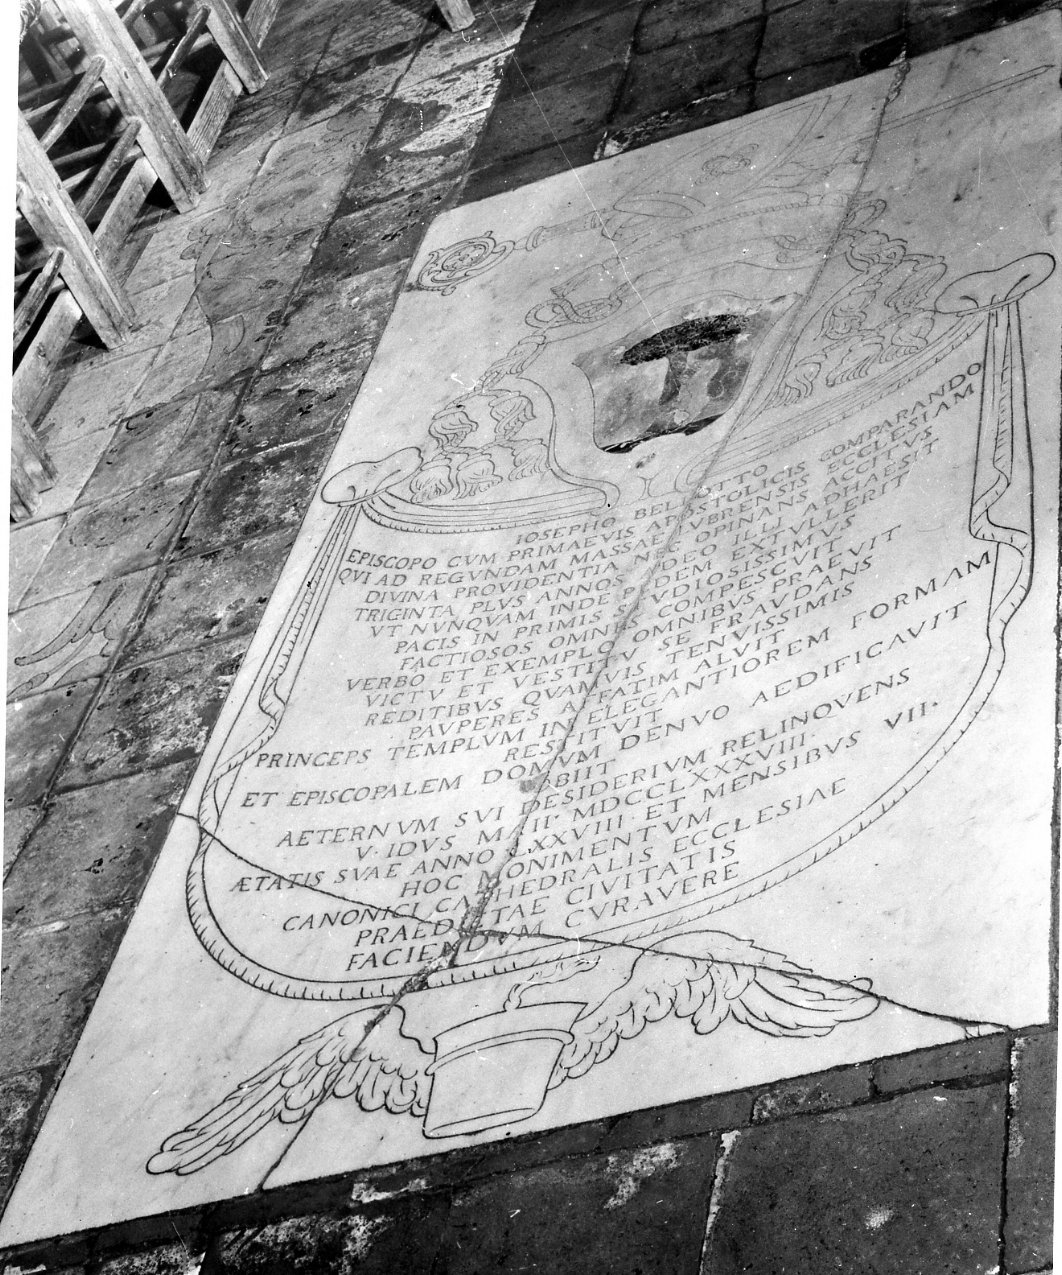 IOSEPHO BELLOTTO
EPISCOPO CVM PRIMAEVIS APOSTOLICIS COMPARANDO
QVI AD REGVNDAM MASSAE LVBRENSIS ECCLESIAM
DIVINA PROVIDENTIA NE OPINANS ACCITVS
TRIGINTA PLVS ANNOS DEO ILLI ADHAESIT
VT NVNQVAM INDE PEDEM EXTVLERIT
PACIS IN PRIMIS STVDIOSISSIMVS
FACTIOSOS OMNIS COMPESCVIT
VERBO ET EXEMPLO OMNIBVS PRAEIVIT
VICTV ET VESTITV SE FRAVDANS
REDITIBVS QVAMVIS TENVISSIMIS
PAVPERES AFFATIM ALVIT
PRINCEPS TEMPLVM IN ELEGANTIOREM FORMAM
RESTITVIT
ET EPISCOPALEM DOMVM DENVO AEDIFICAVIT
OBIIT
AETERNVM SVI DESIDERIVM RELINQVENS
V. IDVS MAII. MDCCLXXXVIII.
ÆTATIS SVAE ANNO LXXVIII. ET MENSIBVS VII.
HOC MONIMENTVM
CANONICI CATHEDRALIS ECCLESIAE
PRAEDICTAE CIVITATIS
FACIENDVM CVRAVERE